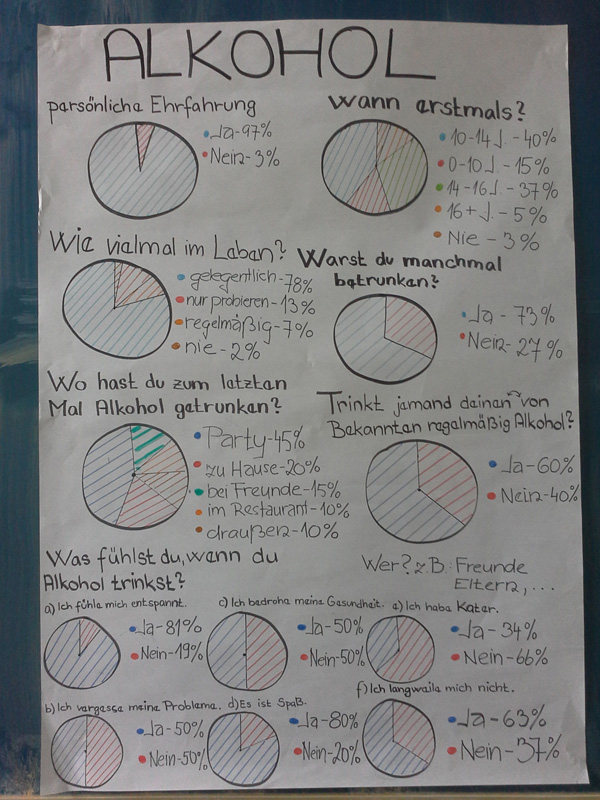 ALKOHOL
persönliche Ehrfahrung
Ja-97%
Nein-3%
Wann erstmals?
10-14 J.-40%
0-10 J.-15%
14-16 J.-37%
16+ J.-5%
Nie-3%
Wie vielmal im Leben?
gelegentlich-78%
nur probieren-13%
regelmäßig-7%
nie-2%
Warst du manchmal
betrunken?
Ja-73%
Nein-27%
Wo hast du zum letzten
Mal Alkohol getrunken?
Party-45%
zu Hause-20%
bei Freunde-15%
im Restaurant-10%
draußen-10%
Trinkt jemand deinen von
Bekannten regelmäßig Alkohol?
Ja-60%
Nein-40%
Wer? z.B.: Freunde
Eltern,...
Was fühlst du, wenn du
Alkohol trinkst?
a) Ich fühle mich entspannt.
Ja-81%
Nein-19%
c) Ich bedrohe meine Gesundheit.
Ja-50%
Nein-50%
e) Ich habe Kater.
Ja-34%
Nein-66%
b) Ich vergesse meine Probleme.
Ja-50%
Nein-50%
d) Es ist Spaß.
Ja-80%
Nein-20%
f) Ich langweile mich nicht.
Ja-63%
Nein-37%